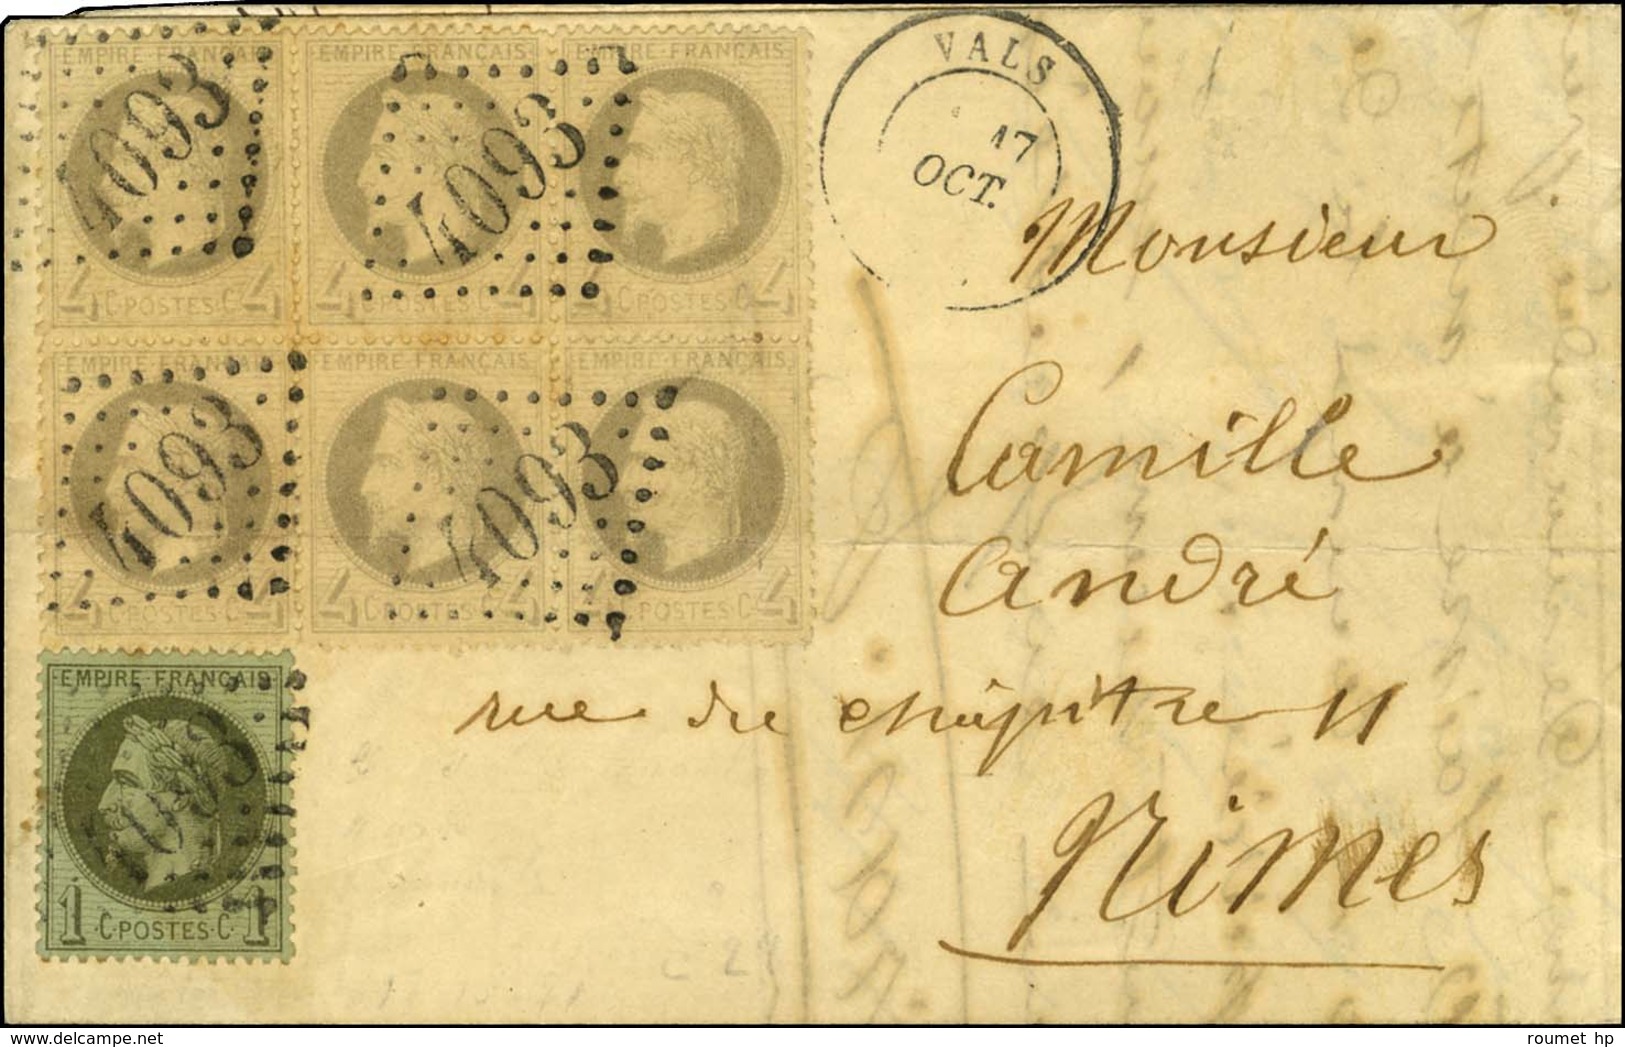 EMPIRE FRANÇAIS EMPIRE FRANÇAIS EMPIRE FRANÇAIS
4093 4093
4 C·POSTES·C 4 4 C·POSTES·C 4 4 C·POSTES·C 4
EMPIRE FRANÇAIS EMPIRE FRANÇAIS EMPIRE FRANÇAIS
4093 4093
4 C·POSTES·C 4 4 C·POSTES·C 4 4 C·POSTES·C 4
EMPIRE FRANÇAIS
4093
1 ·C·POSTES·C· 1
VALS
17
OCT.
Monsieur
Camille
André
rue du chapitre 11
Nimes
delcampe.net
roumet hp